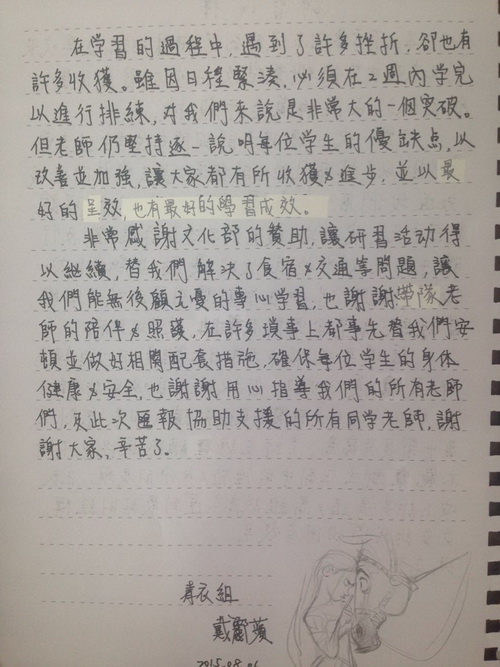 在学習的過程中,遇到了許多挫折,卻也有
許多收獲。雖因日程緊湊,必須在2週內学完
以進行排練,对我們来說是非常大的一個突破。
但老師仍堅持逐一說明每位学生的優缺点,以
改善並加強,讓大家都有所收獲&進步,並以最
好的呈效,也有最好的學習成效。
非常感謝文化部的贊助,讓研習活动得
以繼續,替我們解決了食宿&交通等問題,讓
我們能無後顧之憂的專心学習,也謝謝帶隊老
師的陪伴&照護,在許多瑣事上都事先替我們安
頓並做好相關配套措施,確保每位学生的身体
健康&安全,也謝謝用心指導我們的所有老師
們,及此次匯報協助支援的所有同学老師,謝
謝大家,辛苦了。
青衣組
戴麗蘋
2015.08.